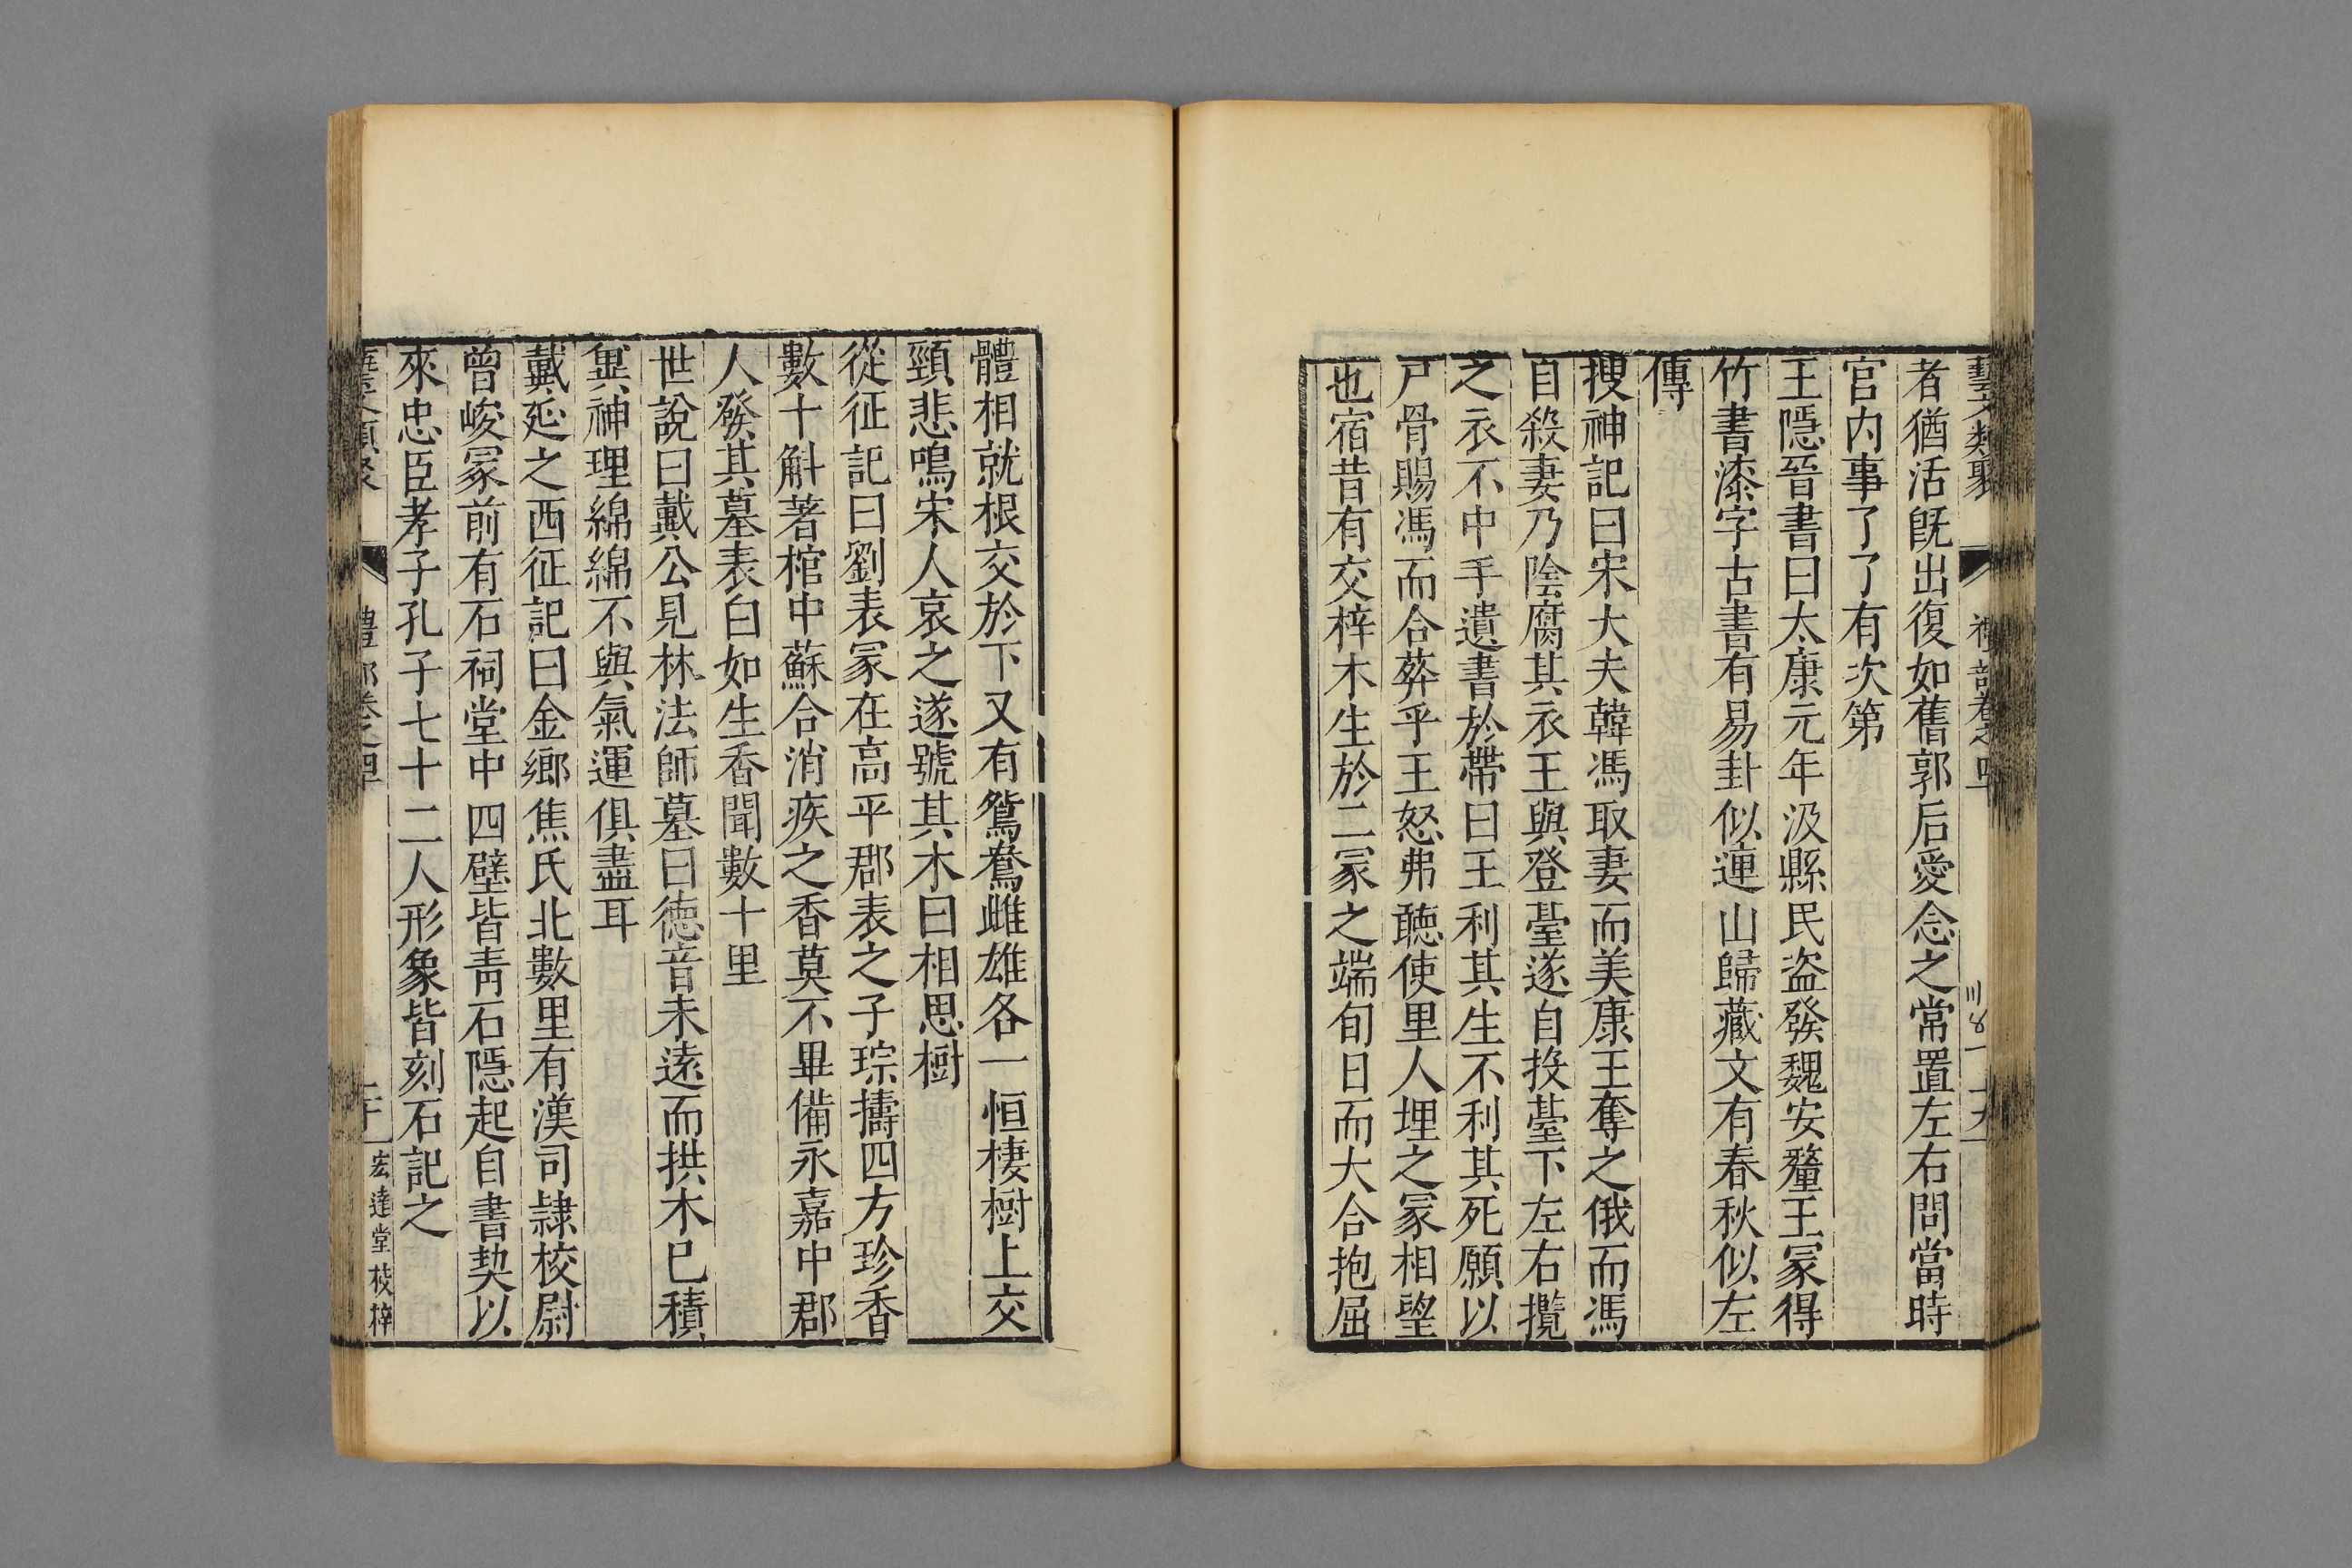 藝文類聚
禮部卷之四
十九
者猶活旣出復如舊郭后愛念之常置左右問當時
官内事了了有次第
王隱晉書曰太康元年汲縣民盗發魏安釐王冢得
竹書漆字古書有易卦似連山歸藏文有春秋似左
傳
搜神記曰宋大夫韓馮取妻而美康王奪之俄而馮
自殺妻乃陰腐其衣王與登䑓遂自投䑓下左右攬
之衣不中手遺書於帶曰王利其生不利其死願以
尸骨賜馮而合葬乎王怒弗聽使里人埋之冢相望
也宿昔有交梓木生於二冢之端旬日而大合抱屈
體相就根交於下又有鴛鴦雌雄各一恒棲樹上交
頸悲鳴宋人哀之遂號其木曰相思樹
從征記曰劉表冢在高平郡表之子琮擣四方珍香
數十斛著棺中蘇合消疾之香莫不畢備永嘉中郡
人發其墓表白如生香聞數十里
世說曰戴公見林法師墓曰德音未遠而拱木已積
兾神理綿綿不與氣運俱盡耳
戴延之西征記曰金鄉焦氏北數里有漢司隷校尉
曾峻冢前有石祠堂中四壁皆青石隱起自書契以
來忠臣孝子孔子七十二人形象皆刻石記之
藝文類聚
禮部卷之四
二十
宏達堂校梓